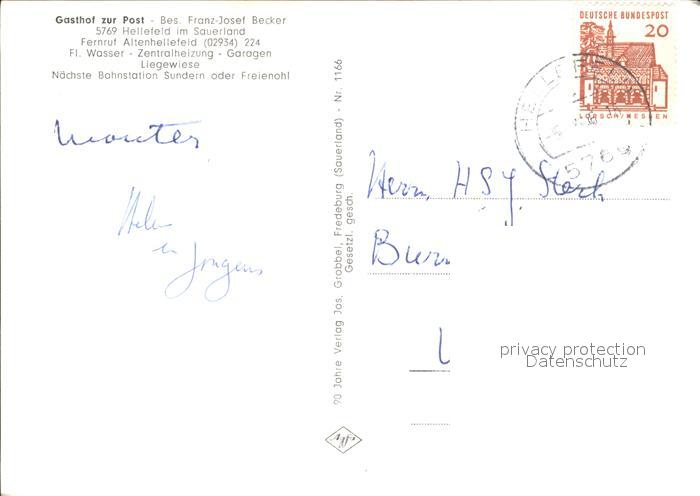 Gasthof zur Post - Bes. Franz-Josef Becker
5769 Hellefeld im Sauerland
Fernruf Altenhellefeld (02934) 224
Fl. Wasser - Zentralheizung - Garagen
Liegewiese
Nächste Bahnstation Sundern oder Freienohl
DEUTSCHE BUNDESPOST
20
LORSCH/HESSEN
5769
90 Jahre Verlag Jos. Grobbel, Fredeburg (Sauerland) - Nr. 1166
Gesetzl. gesch.
en
Jongens
Herrn, H S J
privacy protection
Datenschutz